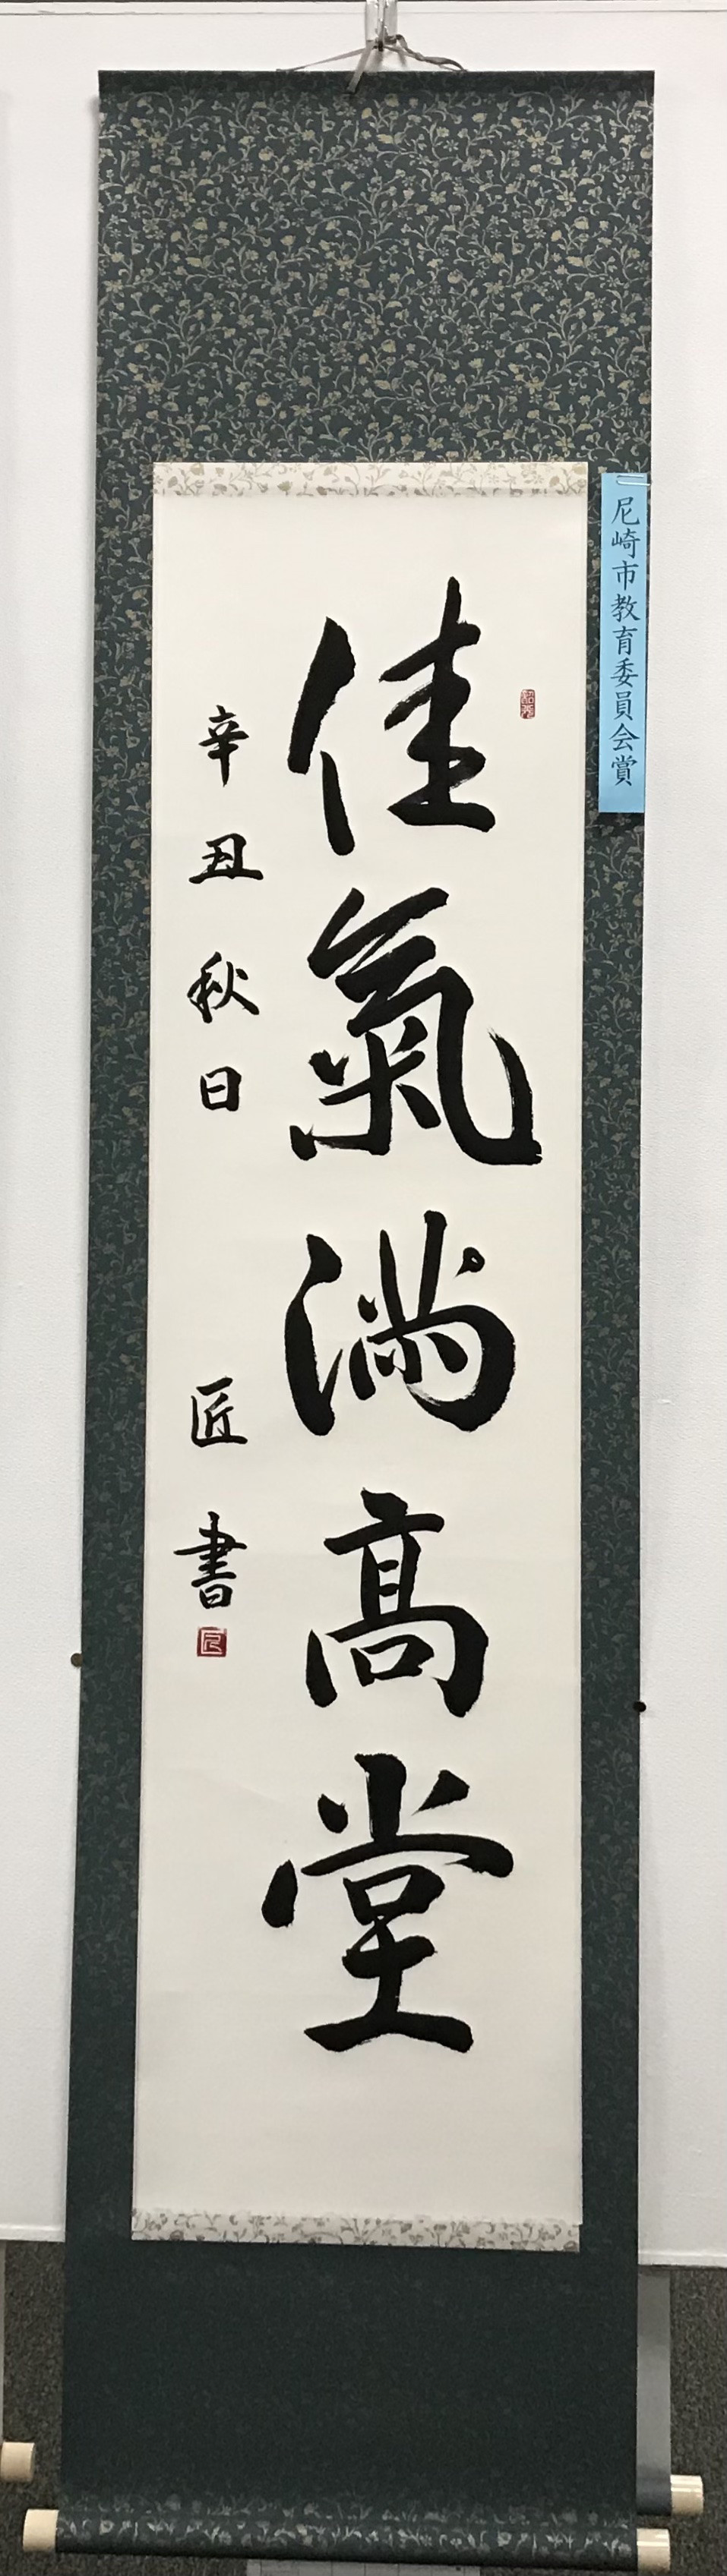 尼崎市教育委員会賞
佳氣満高堂
辛丑秋日 匠書
匠